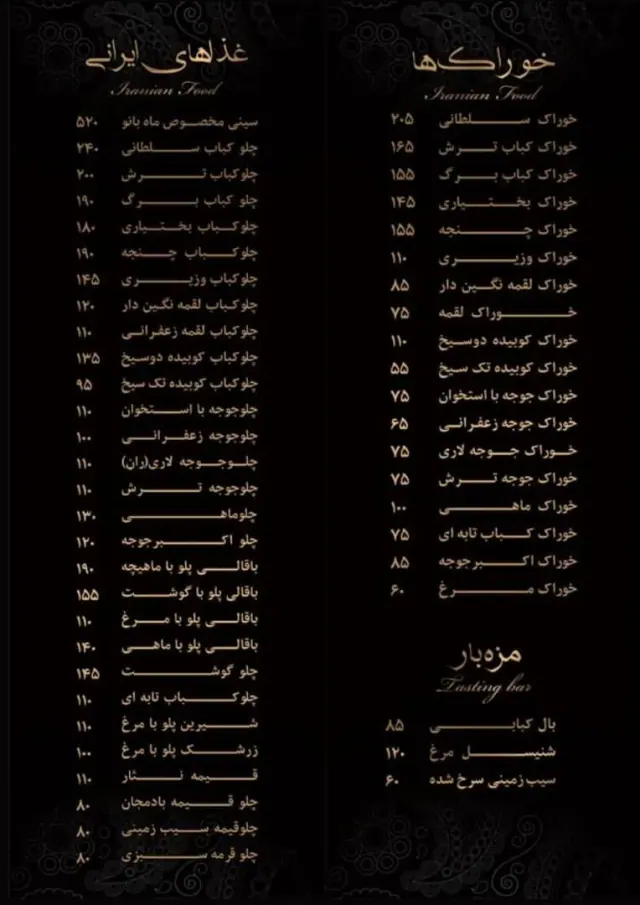 خوراک‌ها
Iranian Food
خوراک سلطانی ۲۰۵
خوراک کباب ترش ۱۶۵
خوراک کباب برگ ۱۵۵
خوراک بختیاری ۱۴۵
خوراک چنجه ۱۵۵
خوراک وزیری ۱۱۰
خوراک لقمه نگین دار ۸۵
خوراک لقمه ۷۵
خوراک کوبیده دوسیخ ۱۱۰
خوراک کوبیده تک سیخ ۵۵
خوراک جوجه با استخوان ۷۵
خوراک جوجه زعفرانی ۶۵
خوراک جوجه لاری ۷۵
خوراک جوجه ترش ۷۵
خوراک ماهی ۱۰۰
خوراک کباب تابه ای ۷۵
خوراک اکبرجوجه ۸۵
خوراک مرغ ۶۰
مزه‌بار
Tasting bar
بال کبابی ۸۵
شنیسل مرغ ۱۲۰
سیب زمینی سرخ شده ۶۰
غذاهای ایرانی
Iranian Food
سینی مخصوص ماه بانو ۵۲۰
چلو کباب سلطانی ۲۴۰
چلوکباب ترش ۲۰۰
چلو کباب برگ ۱۹۰
چلوکباب بختیاری ۱۸۰
چلوکباب چنجه ۱۹۰
چلوکباب وزیری ۱۴۵
چلوکباب لقمه نگین دار ۱۲۰
چلوکباب لقمه زعفرانی ۱۱۰
چلوکباب کوبیده دوسیخ ۱۳۵
چلوکباب کوبیده تک سیخ ۹۵
چلوجوجه با استخوان ۱۱۰
چلوجوجه زعفرانی ۱۰۰
چلوجوجه لاری(ران) ۱۱۰
چلوجوجه ترش ۱۱۰
چلوماهی ۱۳۰
چلو اکبرجوجه ۱۲۰
باقالی پلو با ماهیچه ۱۹۰
باقالی پلو با گوشت ۱۵۵
باقالی پلو با مرغ ۱۱۰
باقالی پلو با ماهی ۱۴۰
چلو گوشت ۱۴۵
چلوکباب تابه ای ۱۱۰
شیرین پلو با مرغ ۱۱۰
زرشک پلو با مرغ ۱۰۰
قیمه نثار ۱۱۰
چلو قیمه بادمجان ۸۰
چلوقیمه سیب زمینی ۸۰
چلو قرمه سبزی ۸۰